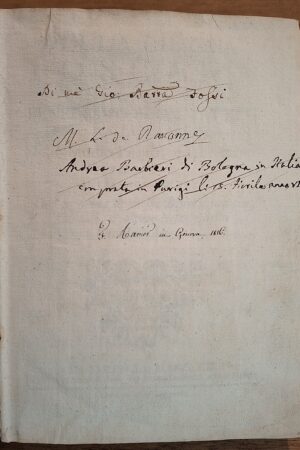 Di me Gio Batta Fossi
M. L. de Narconne
Andrea Barbieri di Bologna in Italia
comprato in Parigi li 15. Fiorile anno
in Genova, 1816.